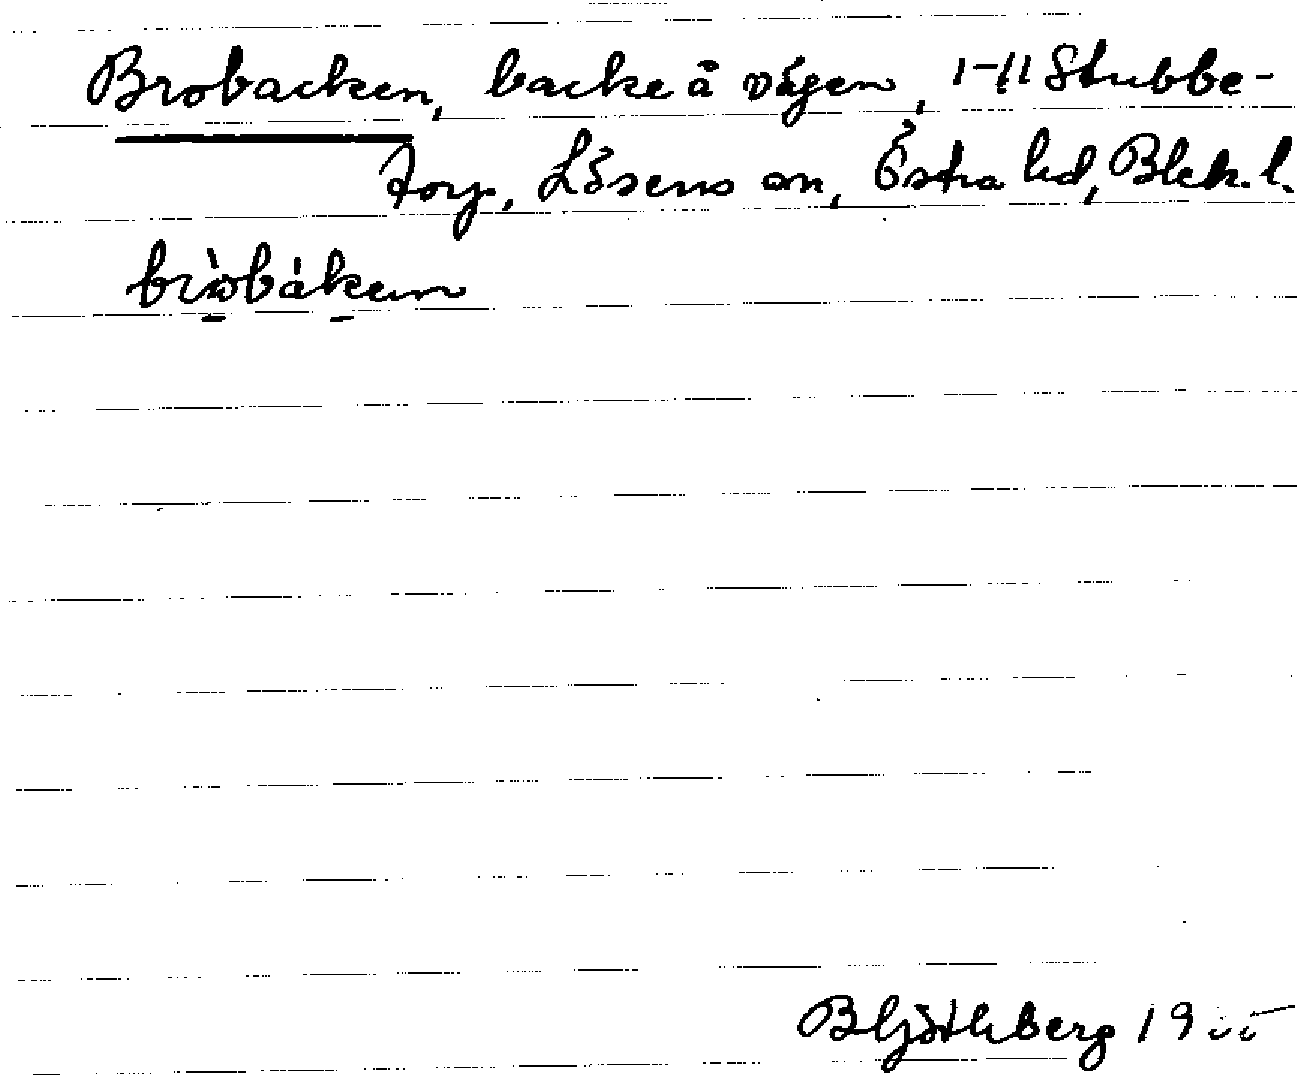 Brobacken, backe å vägen, 1-11 Stubbe-
torp, Lösens sn, Östra hd, Blek. l.
bròbáken